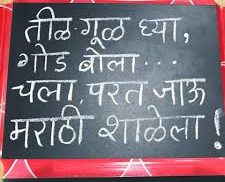 तीळ गूळ घ्या,
गोड बोला...
चला, परत जाऊ
मराठी शाळेला!